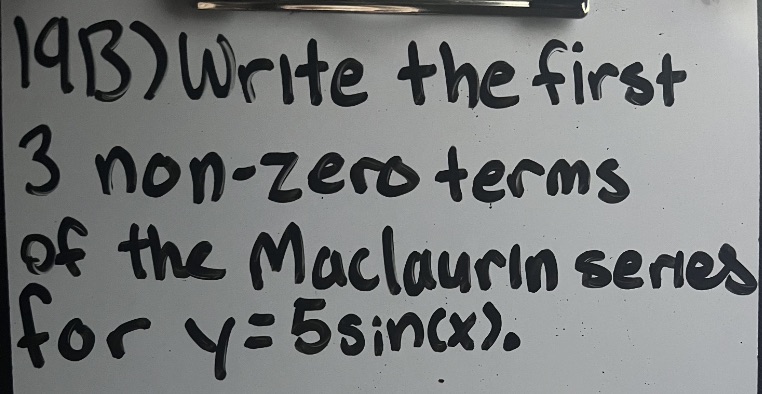 19B) Write the first
3 non-zero terms
of the Maclaurin series
for y=5sin(x).